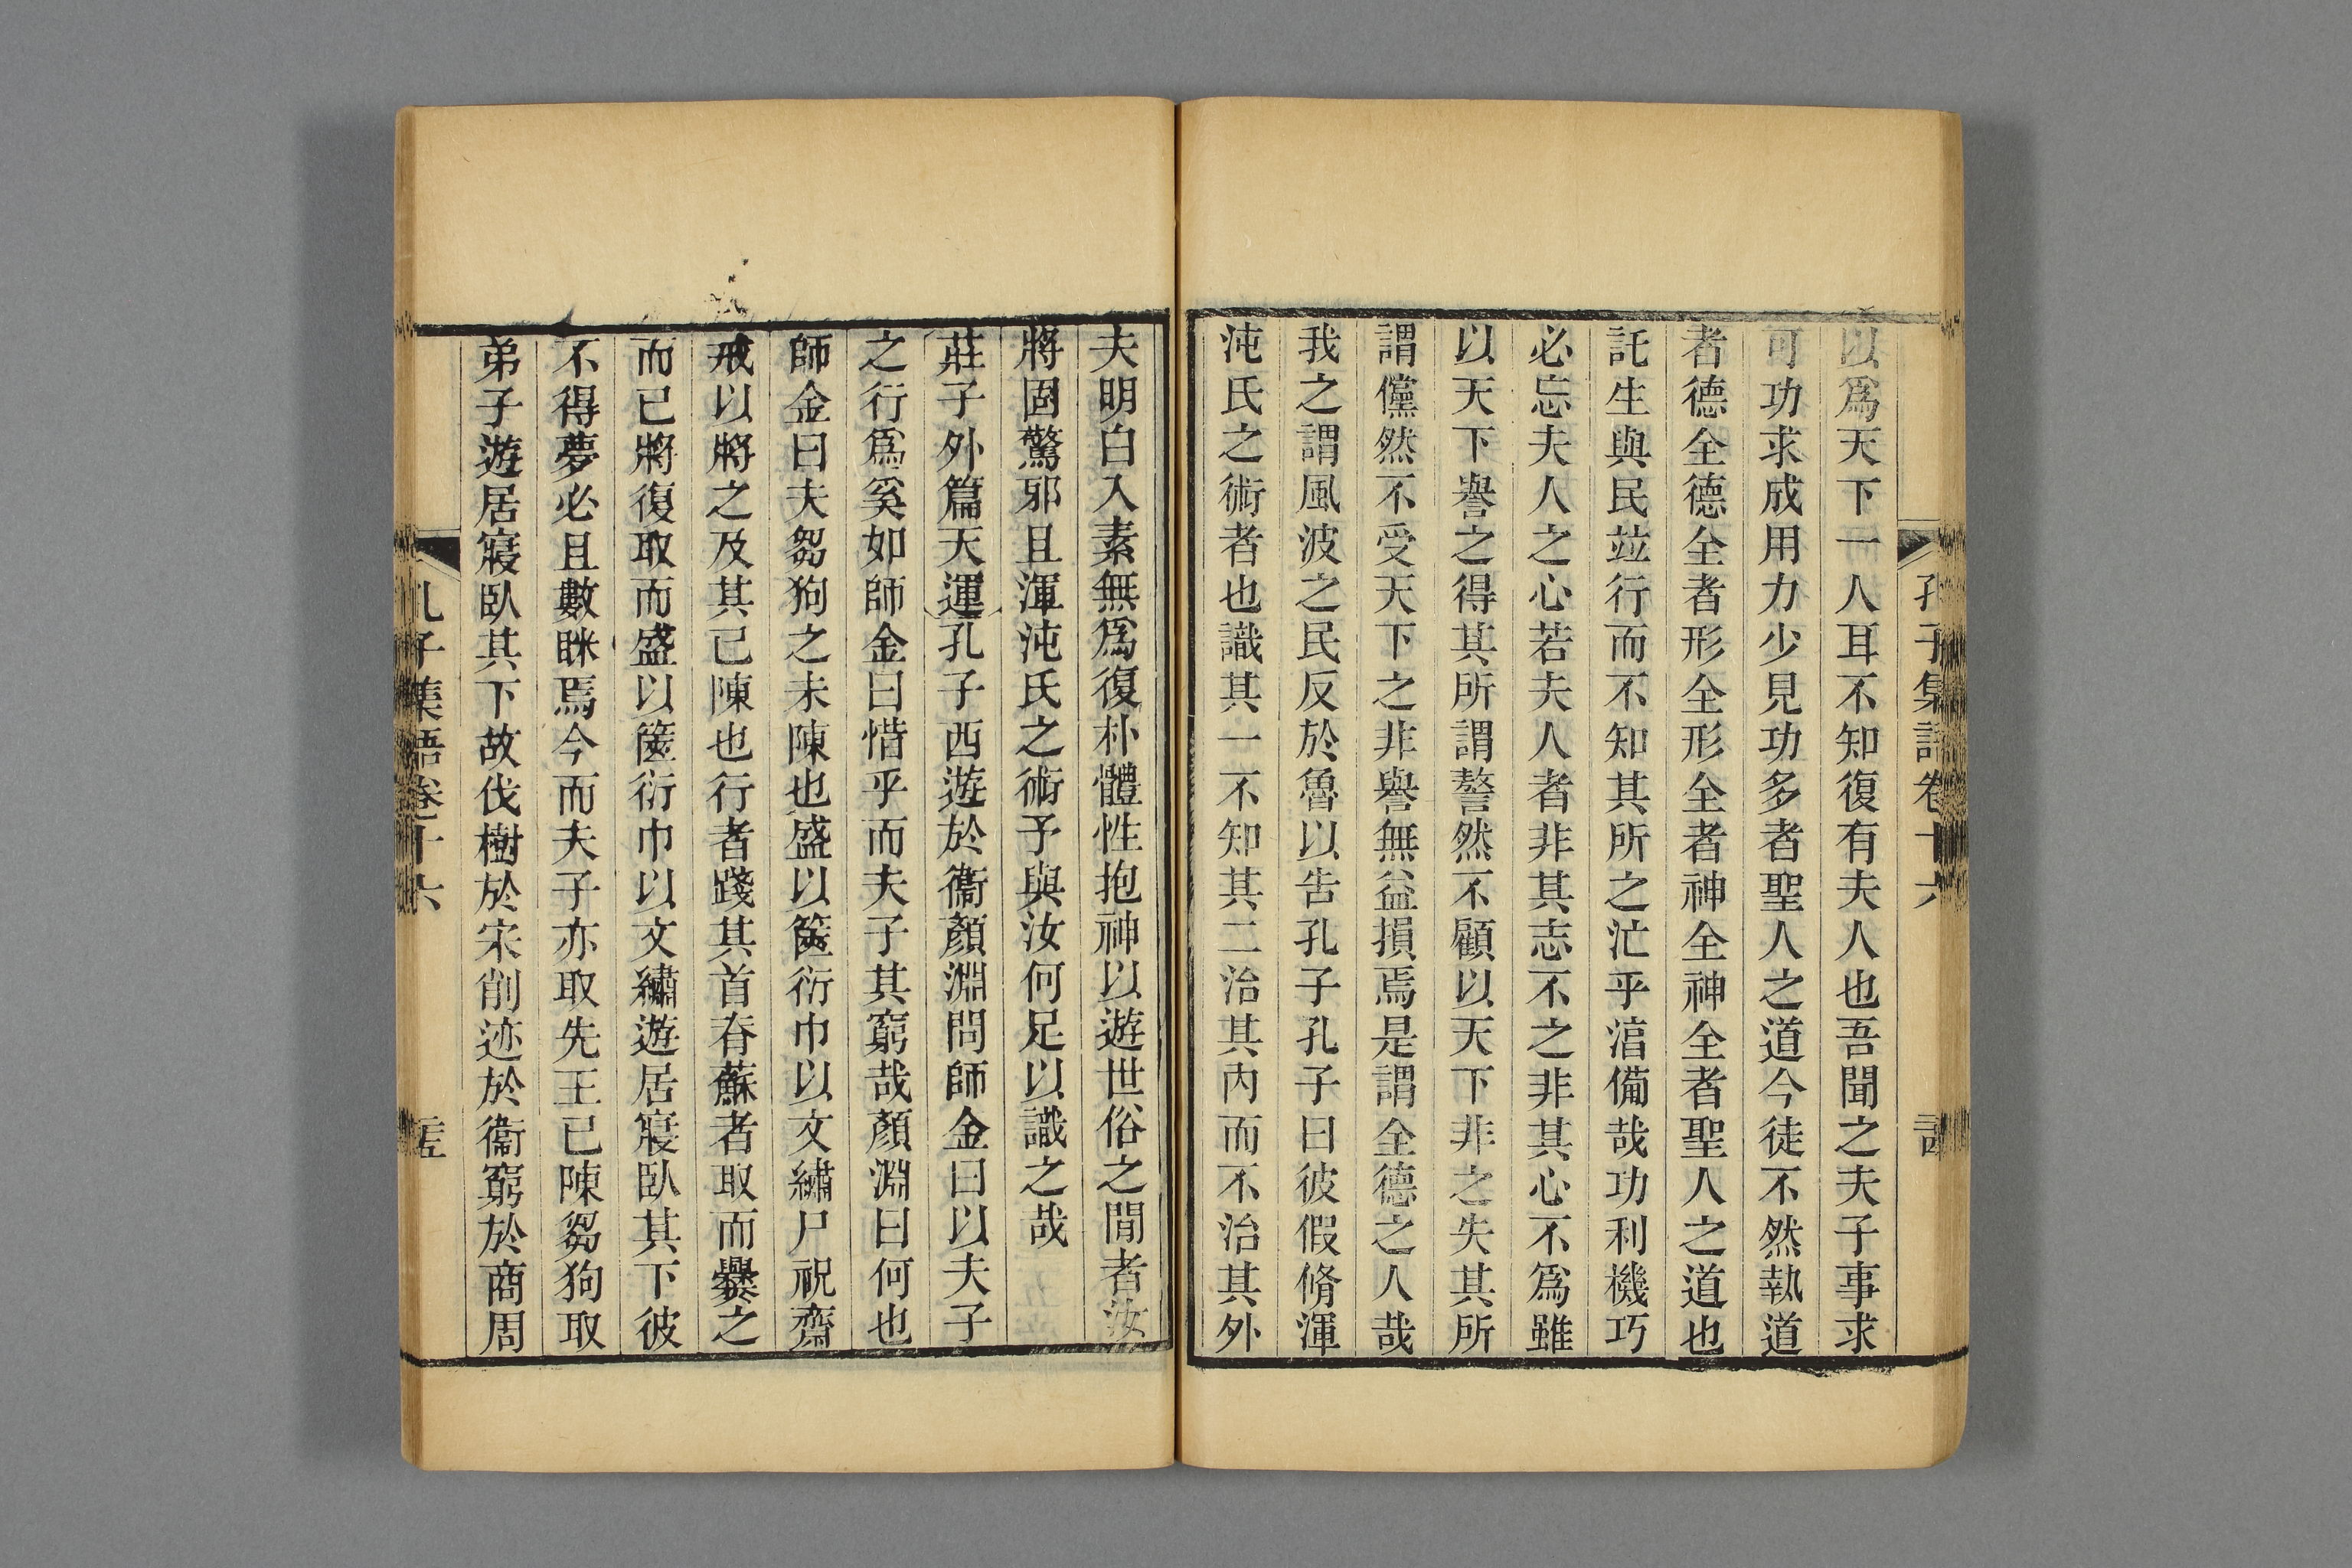 孔子集語卷十六
以爲天下一人耳不知復有夫人也吾聞之夫子事求
可功求成用力少見功多者聖人之道今徒不然執道
者德全德全者形全形全者神全神全者聖人之道也
託生與民竝行而不知其所之汒乎淳備哉功利機巧
必忘夫人之心若夫人者非其志不之非其心不爲雖
以天下譽之得其所謂謷然不顧以天下非之失其所
謂儻然不受天下之非譽無益損焉是謂全德之人哉
我之謂風波之民反於魯以告孔子孔子曰彼假脩渾
沌氏之術者也識其一不知其二治其內而不治其外
夫明白入素無爲復朴體性抱神以遊世俗之閒者汝
將固驚邪且渾沌氏之術予與汝何足以識之哉
莊子外篇天運孔子西遊於衞顏淵問師金曰以夫子
之行爲奚如師金曰惜乎而夫子其窮哉顏淵曰何也
師金曰夫芻狗之未陳也盛以篋衍巾以文繡尸祝齋
戒以將之及其已陳也行者踐其首脊蘇者取而爨之
而已將復取而盛以篋衍巾以文繡遊居寢臥其下彼
不得夢必且數眯焉今而夫子亦取先王已陳芻狗取
弟子遊居寢臥其下故伐樹於宋削迹於衞窮於商周
孔子集語卷十六